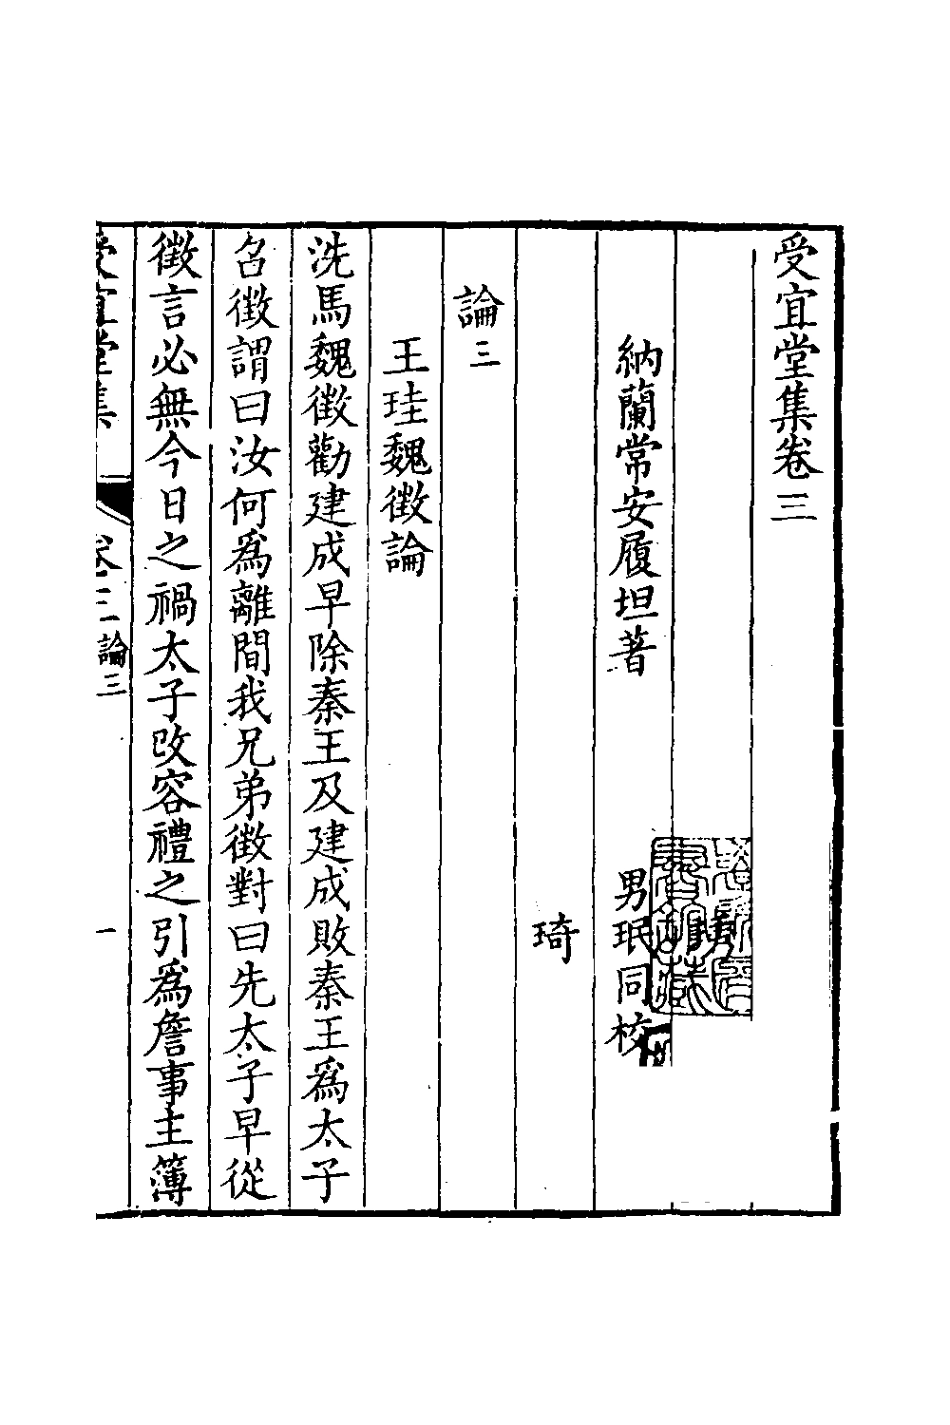 受宜堂集卷三
納蘭常安履坦著
男珉同校
琦
論三
王珪魏徵論
洗馬魏徵勸建成早除秦王及建成敗秦王爲太子
召徵謂曰汝何爲離間我兄弟徵對曰先太子早從
徵言必無今日之禍太子改容禮之引爲詹事主簿
受宜堂集
卷三論三
一